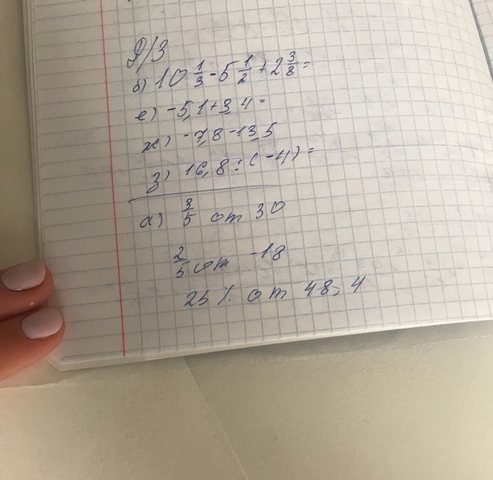 Д/З
б) 10 1/3 - 5 1/2 + 2 3/8 =
е) -5,1 + 3,4 =
ж) -7,8 - 13,5
з) 16,8 : (-4) =
а) 3/5 от 30
2/5 от -18
25% от 48,4